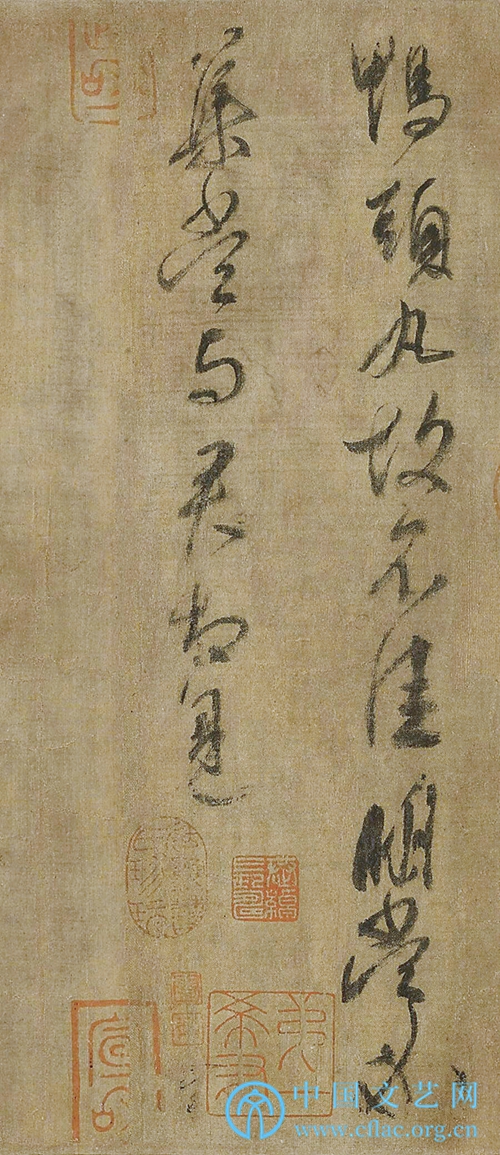 鴨頭丸故不佳明當必
集當與君相見
中国文艺网
www.cflac.org.cn